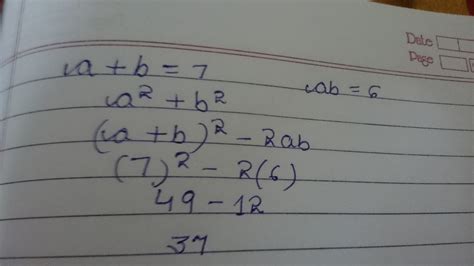 Date
Page
a + b = 7    ab = 6
a² + b²
(a + b)² - 2ab
(7)² - 2(6)
49 - 12
37